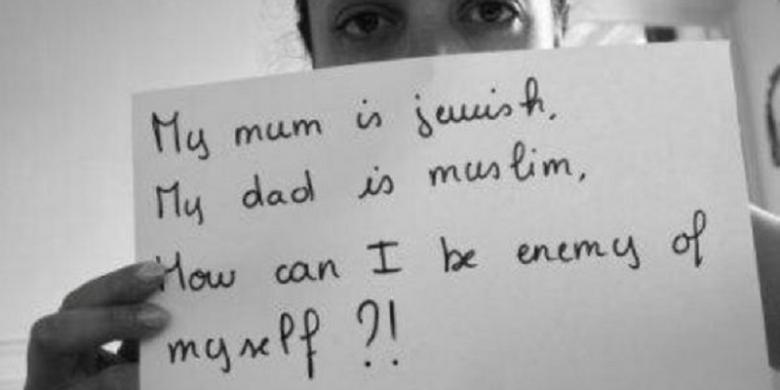 My mum is jewish.
My dad is muslim.
How can I be enemy of
myself ?!